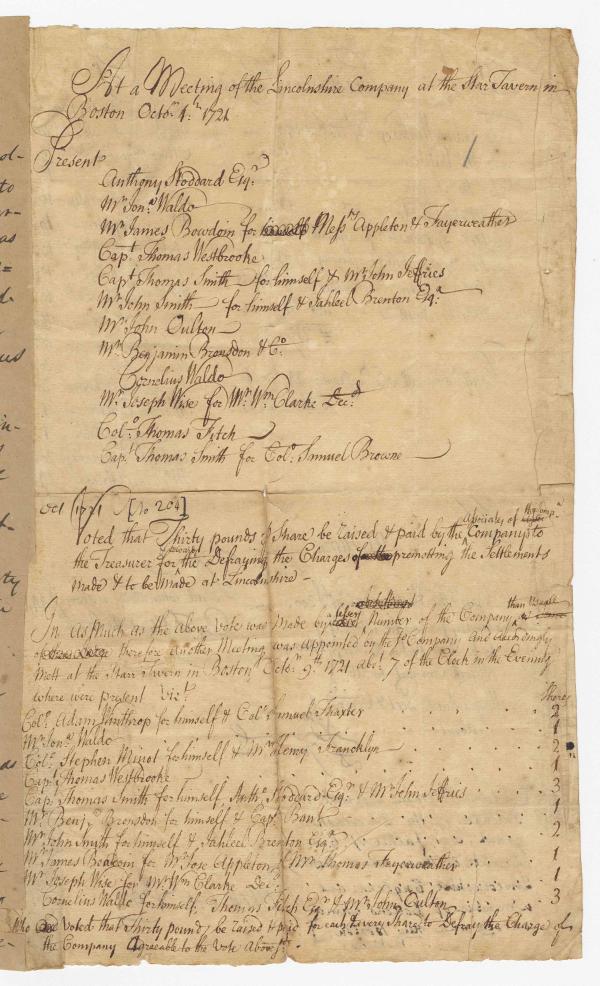 At a Meeting of the Lincolnshire Company at the Star Tavern in
Boston Octo.r 4.th 1721
Present
Anthony Stoddard Esq.r
Mr Jon.a Waldo
Mr James Bowdoin for himself Mess.rs Appleton & Fayerweather
Cap.t Thomas Westbrooke
Cap.t Thomas Smith for himself & Mr John Jeffries
Mr John Smith for himself & Jahleel Brenton Esq.r
Mr John Oulton
Mr Benjamin Bronsdon & Co
Cornelius Waldo
Mr Joseph Wise for Mr Wm Clarke Dec.d
Col.o Thomas Fitch
Cap.t Thomas Smith for Col.o Samuel Browne
Oct 1721 [No 204]
Voted that Thirty pounds p Share be raised & paid by the Associates of the Comp.a to
the Treasurer for the Defraying the Charges promoting the Settlements
made & to be made at Lincolnshire
In as much as the above vote was made by a lesser Number of the Company than Usuall
therefore another Meeting was appointed by the s.d Company and accordingly
Mett at the Starr Tavern in Boston Octo.r 9.th 1721 abo.t 7 of the Clock in the Evening
where were present Viz.t
Shares
Col.o Adam Winthrop for himself & Col.o Samuel Thaxter 2
Mr Jon.a Waldo 1
Col.o Stephen Minot for himself & Mr Henry Francklyn 2
Cap.t Thomas Westbrooke 1
Cap.t Thomas Smith for himself, Anth.o Stoddard Esq.r & Mr John Jeffries 3
Mr Benj.a Bronsdon for himself & Cap.t Bant 1
Mr John Smith for himself & Jahleel Brenton Esq.r 2
Mr James Beaudoin for Mr Jose Appleton & Mr Thomas Fayerweather 1
Mr Joseph Wise for Mr Wm Clarke Dec.d 1
Cornelius Waldo for himself, Thomas Fitch Esq.r & Mr John Oulton 3
Who voted that Thirty pounds be raised & paid for each & every Share to Defray the Charge of
the Company Agreeable to the Vote Above s.d